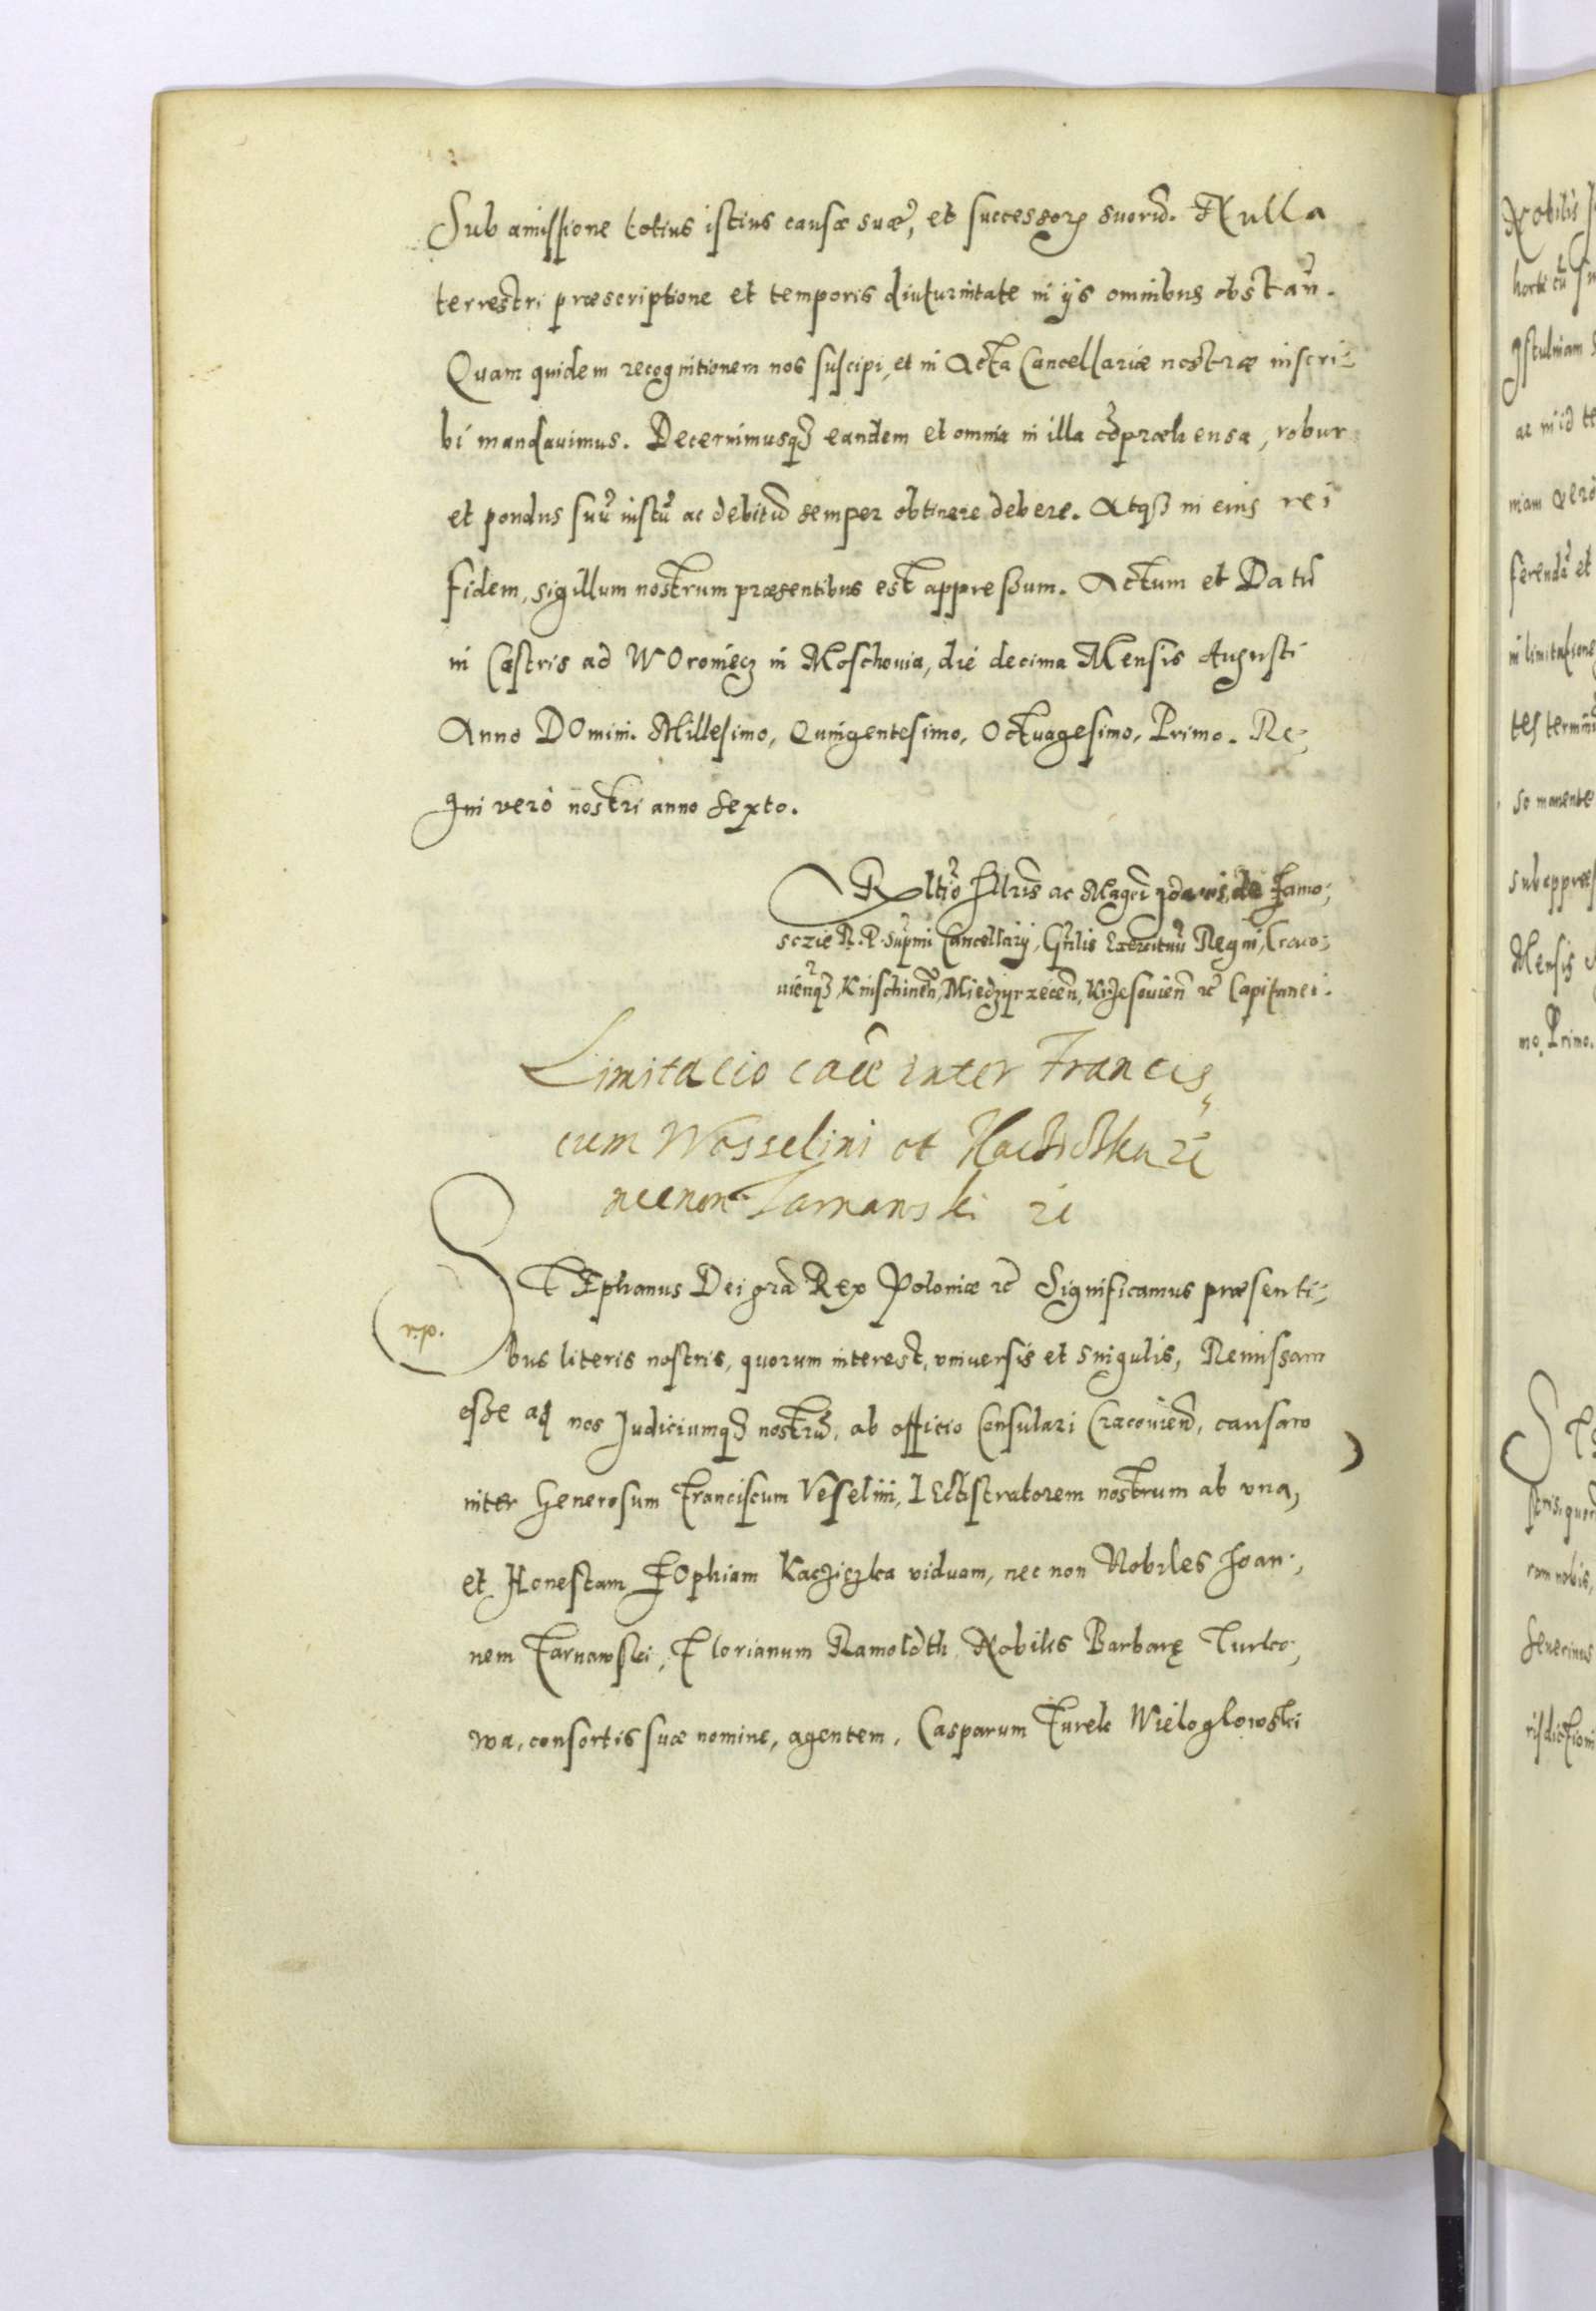 Sub amissione totius istius causæ suæ, et successorꝝ suorũ. Nulla
terrestri præscriptione et temporis diuturnitate in ijs omnibus obstañ.
Quam quidem recognitionem nos suscipi, et in Acta Cancellariæ nostræ inscri-
bi mandauimus. Decernimusqꝫ eandem et omnia in illa cõpræhensa, robur
et pondus suũ iustũ ac debitũ semper obtinere debere. Atqꝫ in eius rei
fidem, sigillum nostrum præsentibus est appressum. Actum et Datũ
in Castris ad WOroniecz in Moschouia, die decima Mensis Augusti
Anno DOmini. Millesimo, Quingentesimo, Octuagesimo, Primo. Re-
gni verò nostri anno Sexto.
Rltĩo Jllris ac Magci Joannis de Zamo-
sczie R. P. Supmi Cancellarij, Gñlis Exercituũ Regni, Craco-
uieñqꝫ, Knischineñ, Miedzyrzeceñ, Krzesouieñ ꝛc̃ Capitanei.
Limitacio caũe inter Francis-
cum Wosselini et Kachichka ꝛc̃
necnon Tarnanski ꝛc
STEphanus Dei gra Rex Poloniæ ꝛc̃ Significamus præsenti-
r.p.
bus literis nostris, quorum interest, vniuersis et singulis, Remissam
esse ad nos Judiciumqꝫ nostrũ, ab officio Consulari Cracouieñ, causam
inter Generosum Franciscum Veselini, LEctistratorem nostrum ab vna,
et Honestam ZOphiam Kacziczka viduam, nec non Nobiles Joan-
nem Tarnawski, Florianum Ramoldth Nobilis Barbaræ Turko-
wa, consortis suæ nomine, agentem, Casparum Turek Wieloglowski